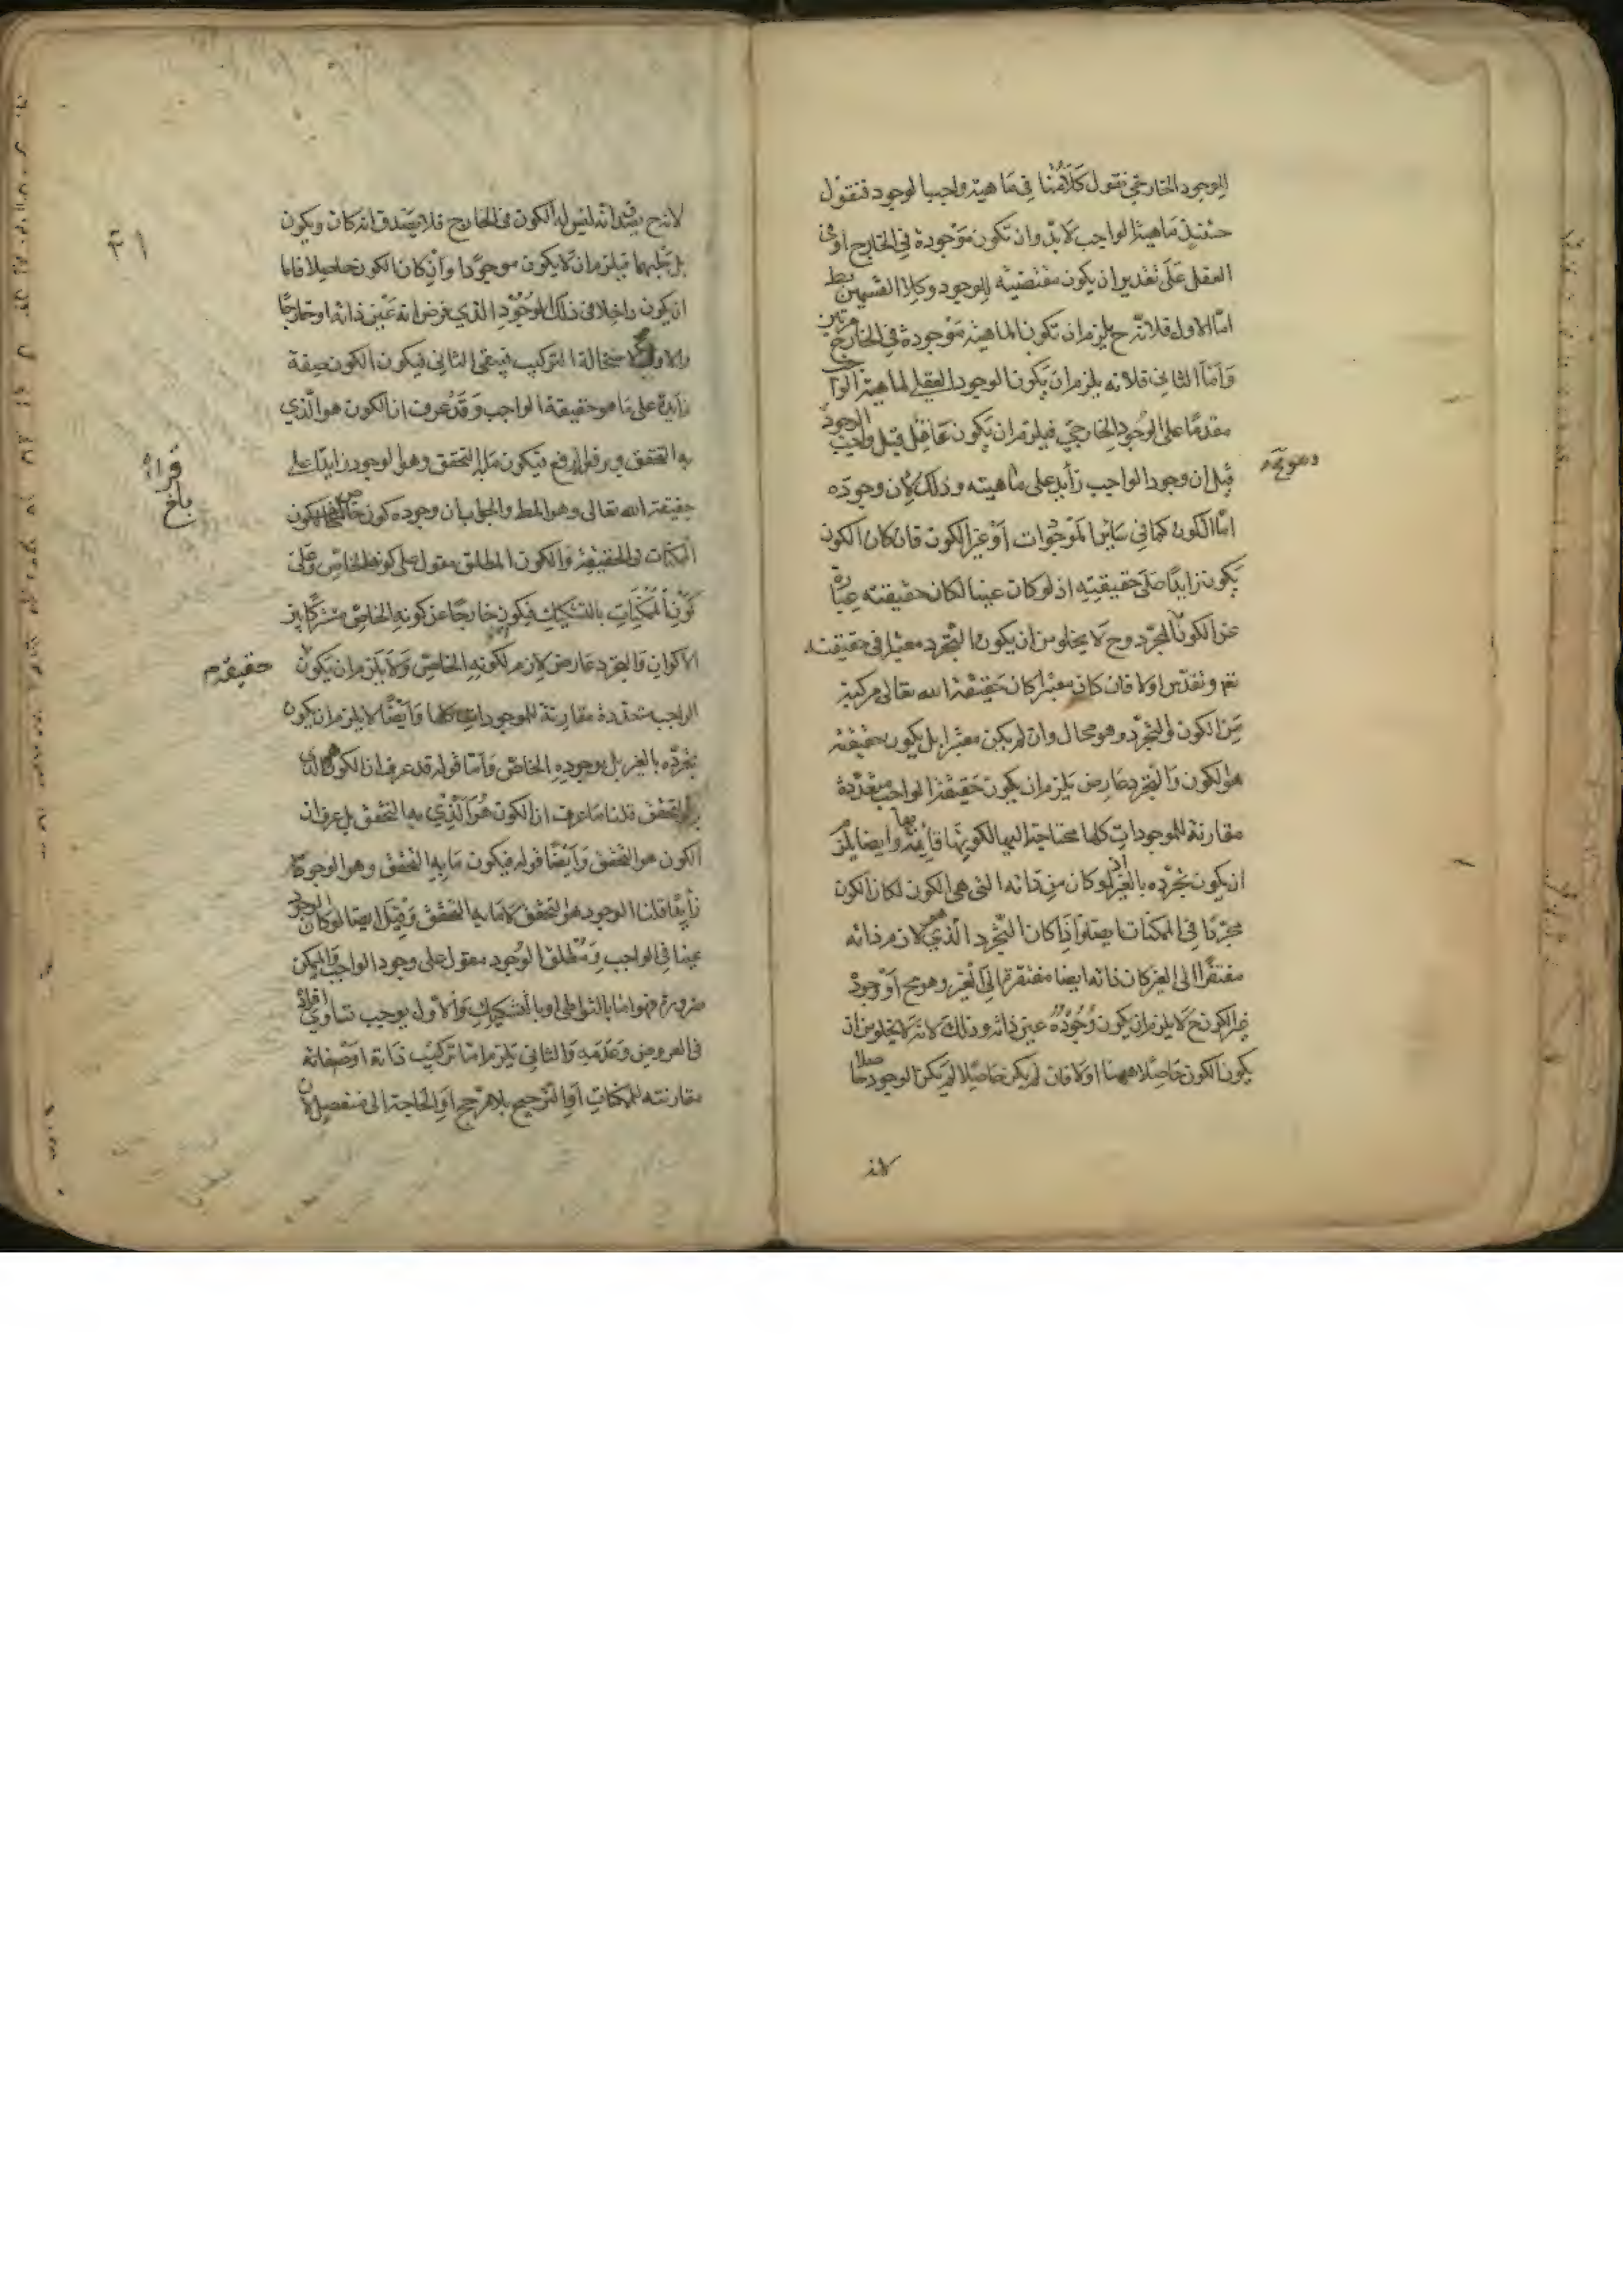 للوجود الخارجي فنقول كلامنا في ماهية واجب الوجود فنقول
حينئذ ماهية الواجب لابد وان تكون موجودة في الخارج او في
العقل على تقدير ان يكون مقتضيته للوجود وكلا القسمين بط
اما الاول فلانه ح يلزم ان تكون الماهية موجودة في الخارج مرتين
واما الثاني فلانه يلزم ان يكون الوجود العقلي لماهية الواجب
مقدما على الوجود الخارجي فيلزم ان يكون عاقل قبل واجب الوجود
قيل ان وجود الواجب زايد على ماهيته وذلك لان وجوده
اما الكون كما في ساير الموجودات او غير الكون فان كان الكون
يكون زايدا على حقيقته اذ لو كان عينها لكان حقيقته عبارة
عن الكون المجرد وح لا يخلو من ان يكون التجرد معتبرا في حقيقته
او لا فان كان معتبرا كان حقيقة الله تعالى مركبة
من الكون والتجرد وهو محال وان لم يكن معتبرا بل يكون حقيقته
هو الكون والتجرد عارض يلزم ان يكون حقيقة الواجب متعددة
مقارنة للموجودات كلها محتاجة اليها لكونها قائمة بها وايضا يلزم
ان يكون تجرده بالغير اذ لو كان من ذاته التي هي الكون لكان الكون
مجردا في الممكنات ايضا واذا كان التجرد الذي هو لازم ذاته
مفتقرا الى الغير كان ذاته ايضا مفتقرة الى الغير وهو مح او وجود
غير الكون ح لا يلزم ان يكون وجوده عين ذاته وذلك لانه لا يخلو من ان
يكون الكون حاصلا ههنا او لا فان لم يكن حاصلا لم يكن الوجود حاصلا
لانه
٤١
لانه ح يصدق انه ليس له الكون في الخارج فلا يصدق انه كان ويكون
بل سلبهما فيلزم ان لا يكون موجودا وان كان الكون حاصلا فاما
ان يكون داخلا في ذلك الوجود الذي فرض انه عين ذاته او خارجا
والاول لاستحالة التركيب فبقي الثاني فيكون الكون صفة
زايدة على ما هو حقيقة الواجب وقد عرف ان الكون هو الذي
به التحقق ويرفعه يرفع فيكون ما به التحقق وهو الوجود زايدا على
قراءة
بلغ
حقيقة الله تعالى وهو المط والجواب ان وجوده كون خاص يخالف كون
الممكنات في الحقيقة والكون المطلق مقول على كونه الخاص وعلى
كون الممكنات بالتشكيك فيكون خارجا عن كونه الخاص مشتركا بين
الاكوان والتجرد عارض لازم لكونه الخاص ولا يلزم ان يكون حقيقة
الواجب متعددة مقارنة للموجودات كلها وايضا لا يلزم ان يكون
تجرده بالغير بل بوجوده الخاص واما قوله قد عرف ان الكون هو الذي
به التحقق قلنا ما عرف ان الكون هو الذي به التحقق بل عرف ان
الكون هو التحقق وايضا قوله فيكون ما به التحقق وهو الوجود
زايدا قلنا الوجود هو التحقق لا ما به التحقق وقيل ايضا لو كان الوجود
عينا في الواجب ومطلق الوجود مقول على وجود الواجب والممكن
ضرورة فهو اما بالتواطي او بالتشكيك والاول يوجب تساوي افراده
في العروض وعدمه والثاني يلزم اما تركيب ذاته او صفاته
مقارنته للممكنات او الترجيح بلا مرجح او الحاجة الى منفصل لان